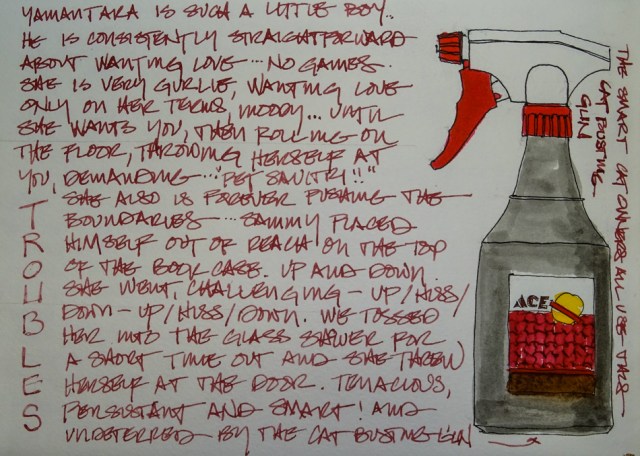 YAMANTARA IS SUCH A LITTLE BOY..
HE IS CONSISTENTLY STRAIGHTFORWARD
ABOUT WANTING LOVE... NO GAMES.
SHE IS VERY GURLIE, WANTING LOVE
ONLY ON HER TERMS, MOODY... UNTIL
SHE WANTS YOU, THEN ROLLING ON
THE FLOOR, THROWING HERSELF AT
YOU, DEMANDING..."PET SAVITRI!!"
SHE ALSO IS FOREVER PUSHING THE
BOUNDARIES... SAMMY PLACED
HIMSELF OUT OF REACH ON THE TOP
OF THE BOOK CASE. UP AND DOWN
SHE WENT, CHALLENGING - UP/HISS/
DOWN - UP/HISS/DOWN. WE TOSSED
HER INTO THE GLASS SHOWER FOR
A SHORT TIME OUT AND SHE THREW
HERSELF AT THE DOOR. TENACIOUS,
PERSISTANT AND SMART! AND
UNDETERRED BY THE CAT BUSTING GUN
TROUBLES
ACE
THE SMART CAT OWNERS ALL USE THIS
CAT BUSTING
GUN